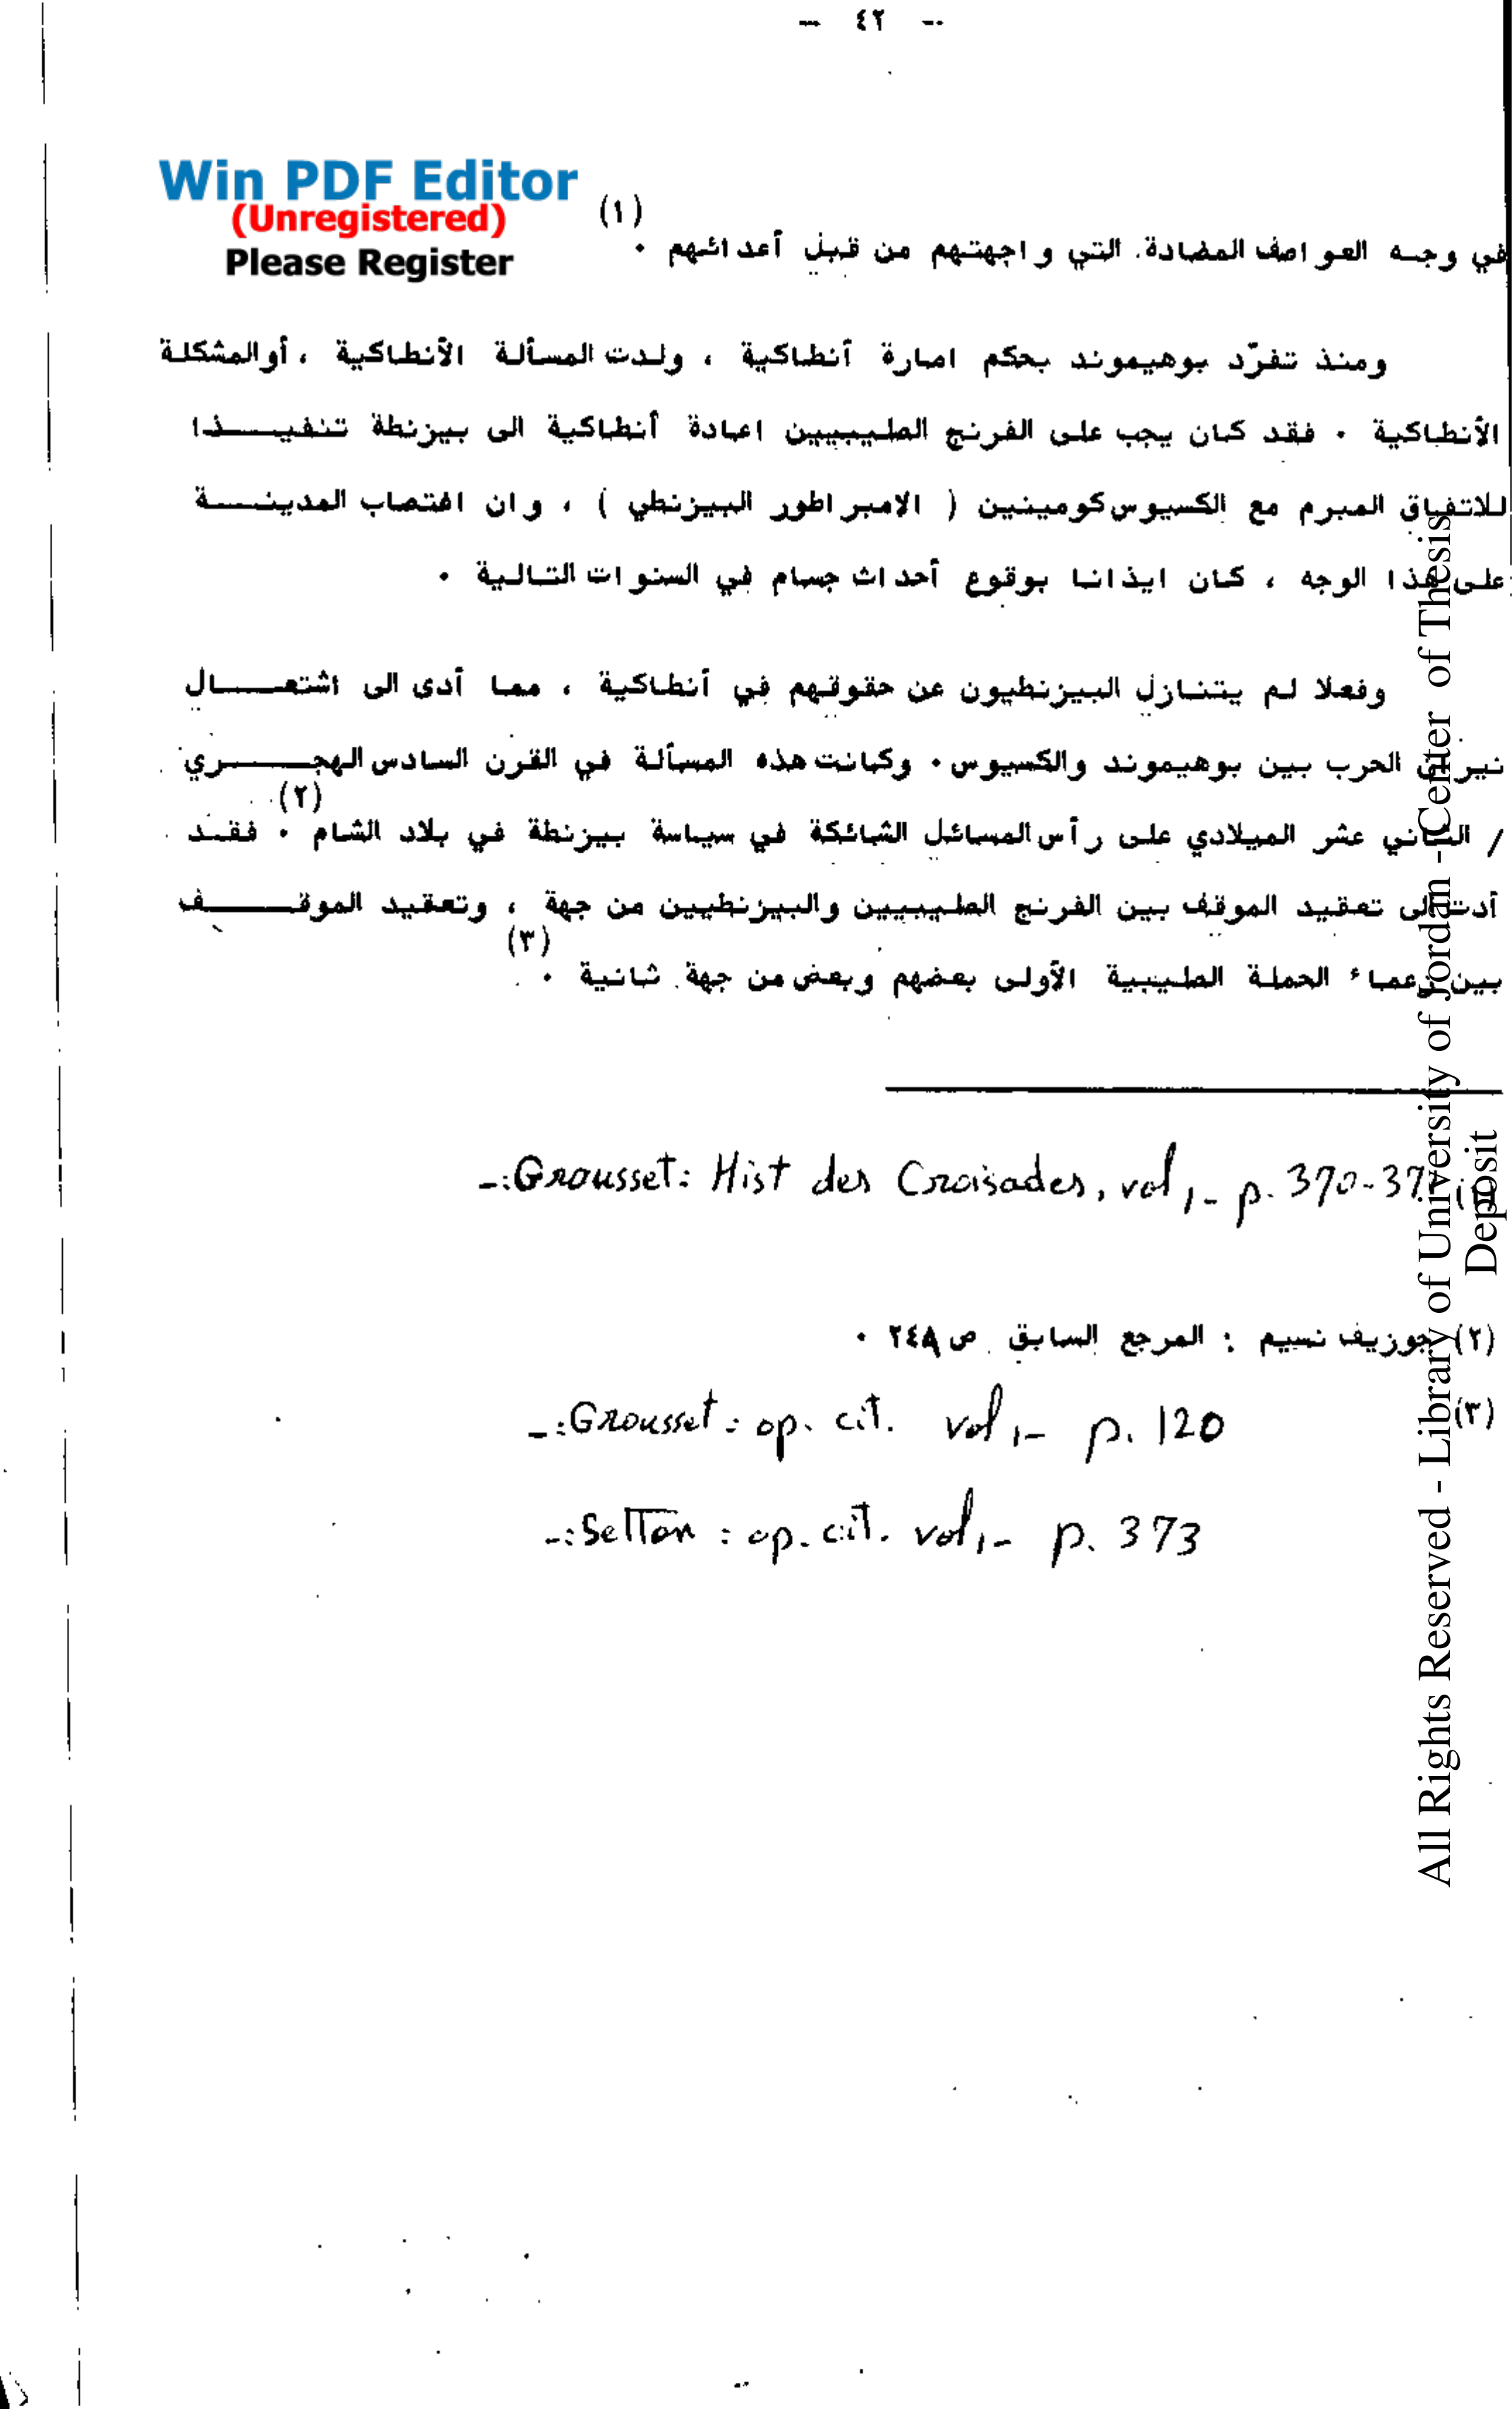 -- ٤٢ --
Win PDF Editor
(Unregistered)
Please Register
(١)
في وجه العواصف المضادة التي واجهتهم من قبل أعدائهم ٠
ومنذ تفرّد بوهيموند بحكم امارة أنطاكية ، ولدت المسألة الأنطاكية ، أو المشكلة
الأنطاكية ٠ فقد كان يجب على الفرنج الصليبيين اعادة أنطاكية الى بيزنطة تنفيــــذا
للاتفاق المبرم مع الكسيوس كومينين ( الامبراطور البيزنطي ) ، وان اغتصاب المدينــــة
على هذا الوجه ، كان ايذانا بوقوع أحداث جسام في السنوات التالية ٠
وفعلا لم يتنازل البيزنطيون عن حقوقهم في أنطاكية ، مما أدى الى اشتعــــال
نيران الحرب بين بوهيموند والكسيوس ٠ وكانت هذه المسألة في القرن السادس الهجــــري
/ الثاني عشر الميلادي على رأس المسائل الشائكة في سياسة بيزنطة في بلاد الشام (٢) ٠ فقد
أدت الى تعقيد الموقف بين الفرنج الصليبيين والبيزنطيين من جهة ، وتعقيد الموقــــف
بين زعماء الحملة الصليبية الأولى بعضهم وبعض من جهة ثانية (٣) ٠
-:Grousset: Hist des Croisades, vol 1- p. 370-37
(٢) جوزيف نسيم : المرجع السابق ص ٢٤٨ ٠
(٣) -:Grousset: op. cit. vol 1- p. 120
-:Setton: op. cit. vol 1- p. 373
All Rights Reserved - Library of University of Jordan - Center of Thesis
Deposit